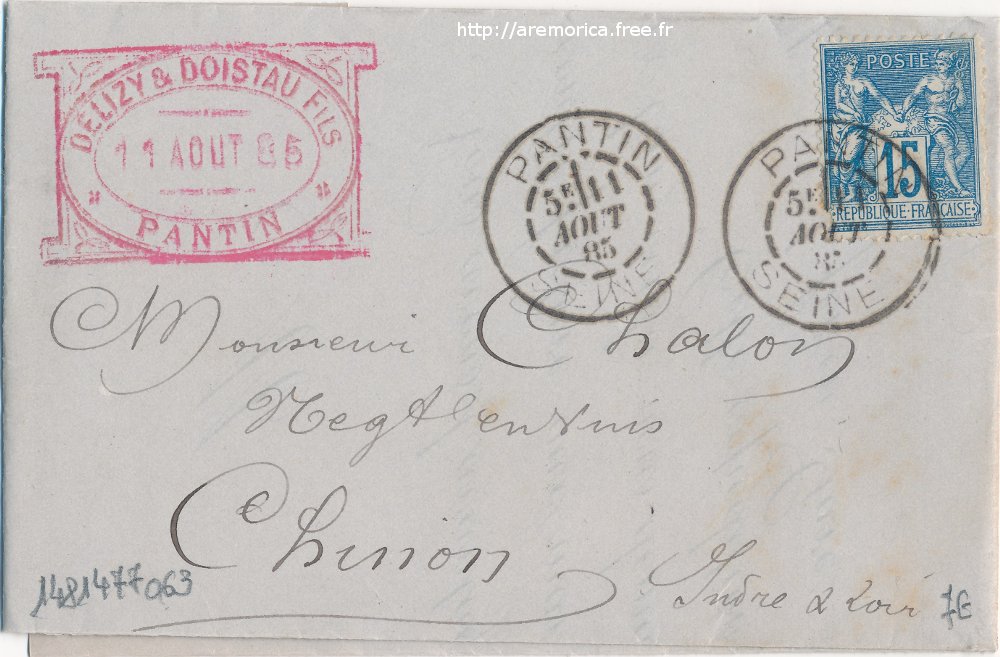 http://aremorica.free.fr
DELIZY & DOISTAU FILS
11 AOUT 85
PANTIN
PANTIN
5E 11
AOUT
85
SEINE
PANTIN
5E 11
AOUT
85
SEINE
POSTE
15
REPUBLIQUE FRANÇAISE
Monsieur Chalon
Negt en vins
Chinon
Indre & Loir
1481477063
7E